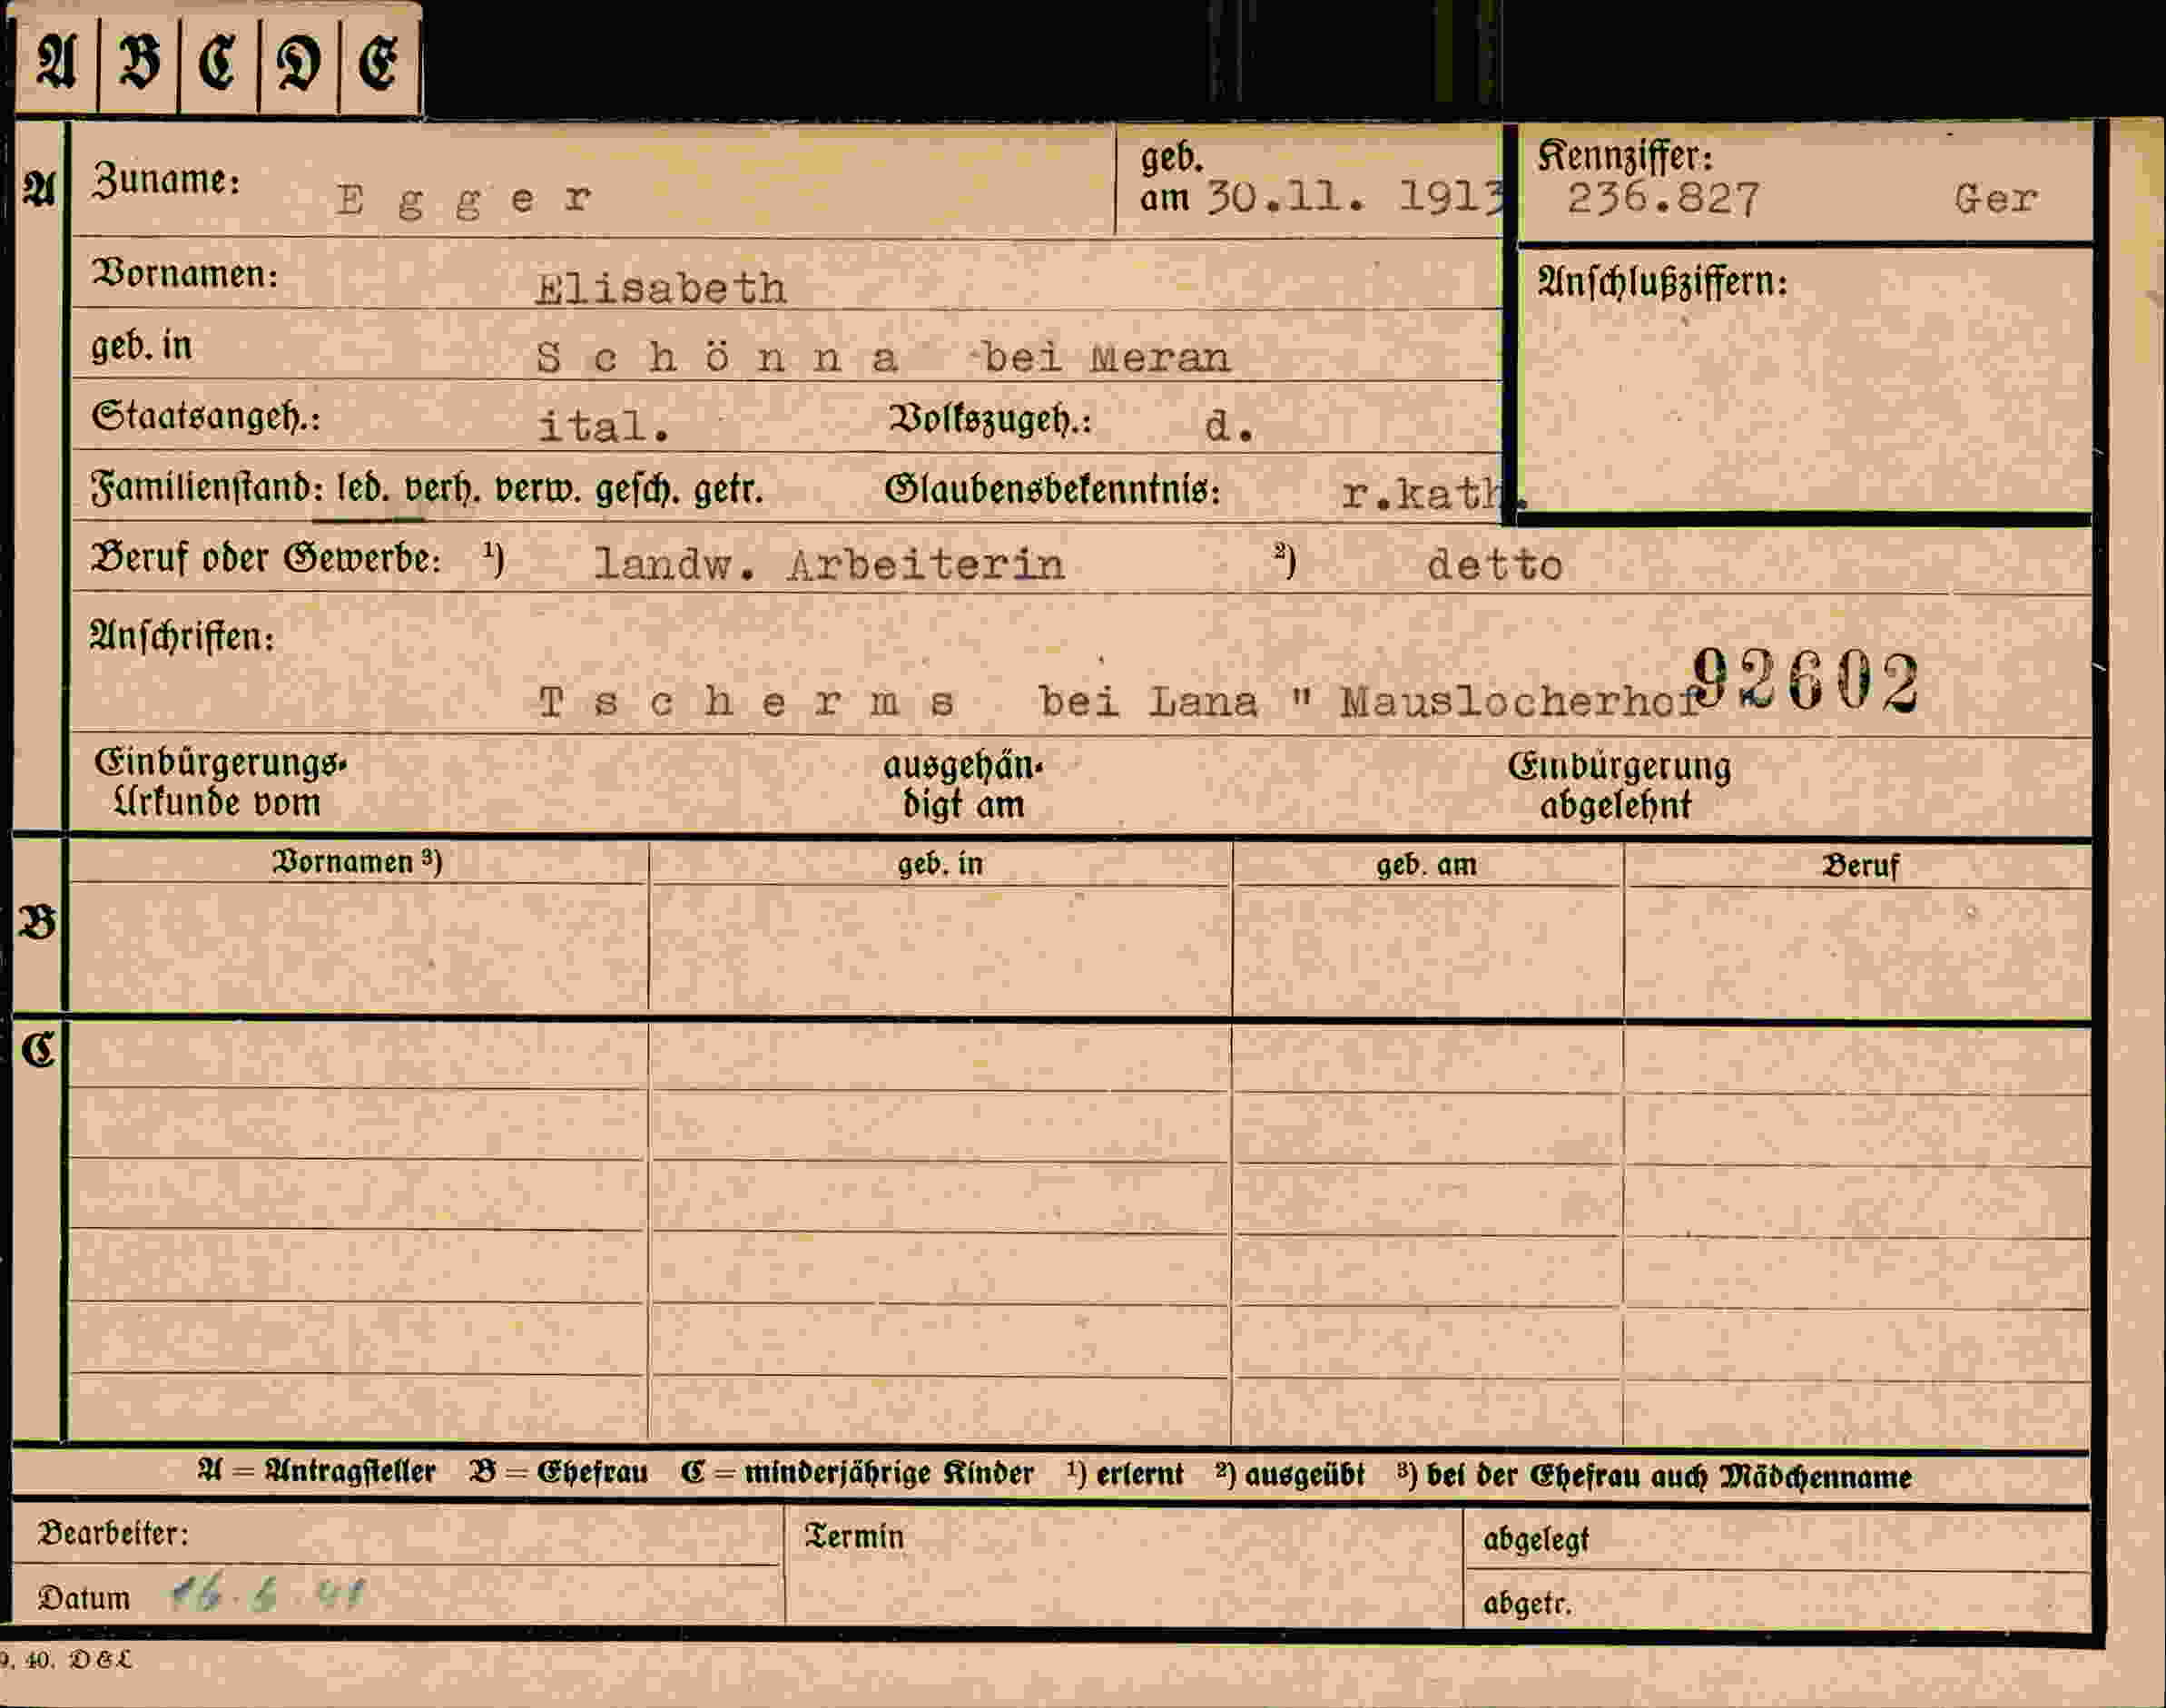 A B C D E
A Zuname: Egger geb. am 30.11. 1913 Kennziffer: 236.827 Ger
Vornamen: Elisabeth Anschlußziffern:
geb. in Schönna bei Meran
Staatsangeh.: ital. Volkszugeh.: d.
Familienstand: led. verh. verw. gesch. getr. Glaubensbekenntnis: r.kath.
Beruf oder Gewerbe: ¹) landw. Arbeiterin ²) detto
Anschriften:
Tscherms bei Lana " Mauslocherhof 92602
Einbürgerungs- ausgehän- Einbürgerung
Urkunde vom digt am abgelehnt
Vornamen ³) geb. in geb. am Beruf
B
C
A = Antragsteller B = Ehefrau C = minderjährige Kinder ¹) erlernt ²) ausgeübt ³) bei der Ehefrau auch Mädchenname
Bearbeiter: Termin abgelegt
Datum 16.6.41 abgetr.
9. 40. D&L